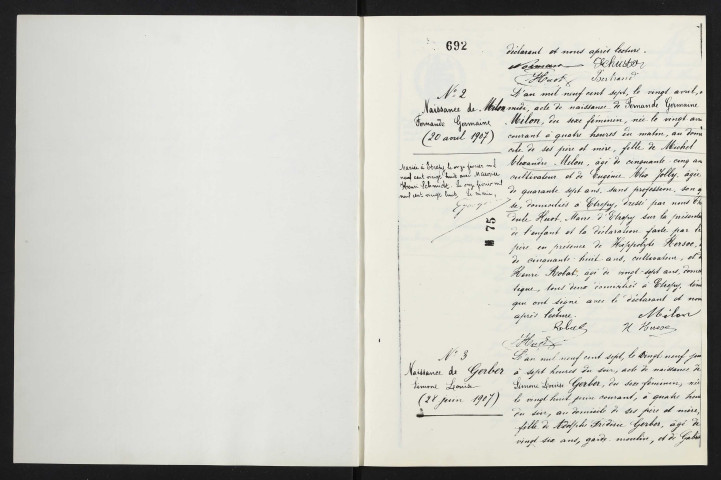 692
déclarant et nous après lecture.
Bertrand
Huot
N° 2
Naissance de Milon
Fernande Germaine
(20 avril 1907)
Mariée à Etrepy le onze février mil
neuf cent vingt huit avec Maurice
Henri Schmidt. Le onze février mil
neuf cent vingt huit. Le Maire,
75
L'an mil neuf cent sept, le vingt avril, à
midi, acte de naissance de Fernande Germaine
Milon, du sexe féminin, née le vingt avril
courant à quatre heures du matin, au domi
cile de ses père et mère, fille de Michel
Alexandre Milon, âgé de cinquante cinq ans
cultivateur et de Eugénie Jolly, âgée
de quarante sept ans, sans profession, son
se, domiciliés à Etrepy, dressé par nous
Huot, Maire d'Etrepy sur la présenta
de l'enfant et la déclaration faite par le
père en présence de Hippolyte
de cinquante-huit ans, cultivateur, et
Henri âgé de vingt-sept ans, domes
tique, tous deux domiciliés à Etrepy, témoins
qui ont signé avec le déclarant et nous
après lecture. Milon
Huot
N° 3
Naissance de Gerber
Simone Louise
(28 juin 1907)
L'an mil neuf cent sept, le vingt neuf juin
à sept heures du soir, acte de naissance de
Simone Louise Gerber, du sexe féminin, née
le vingt huit juin courant, à quatre heures
du soir, au domicile de ses père et mère,
fille de Adolphe Frédéric Gerber, âgé de
vingt six ans, garde moulin, et de